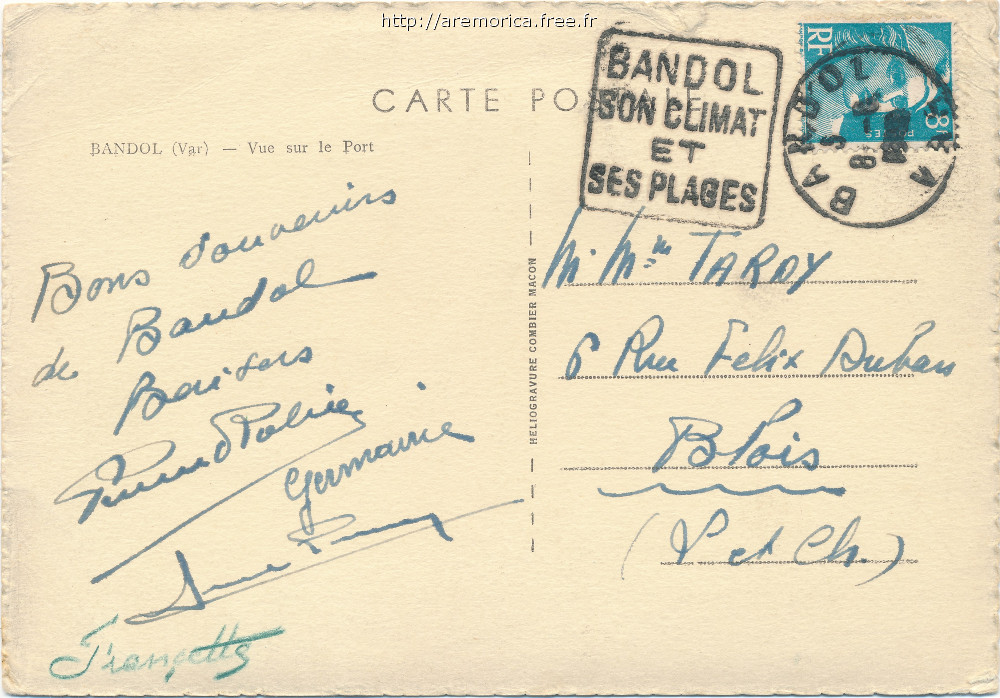 http://aremorica.free.fr
CARTE POSTALE
BANDOL (Var) — Vue sur le Port
BANDOL
SON CLIMAT
ET
SES PLAGES
RF
8F
POSTES
BANDOL
VAR
Bons souvenirs
de Bandol
Baisers
Germaine
Françette
HELIOGRAVURE COMBIER MACON
M. Mme TARDY
6 Rue Felix Duban
Blois
(L et Ch.)